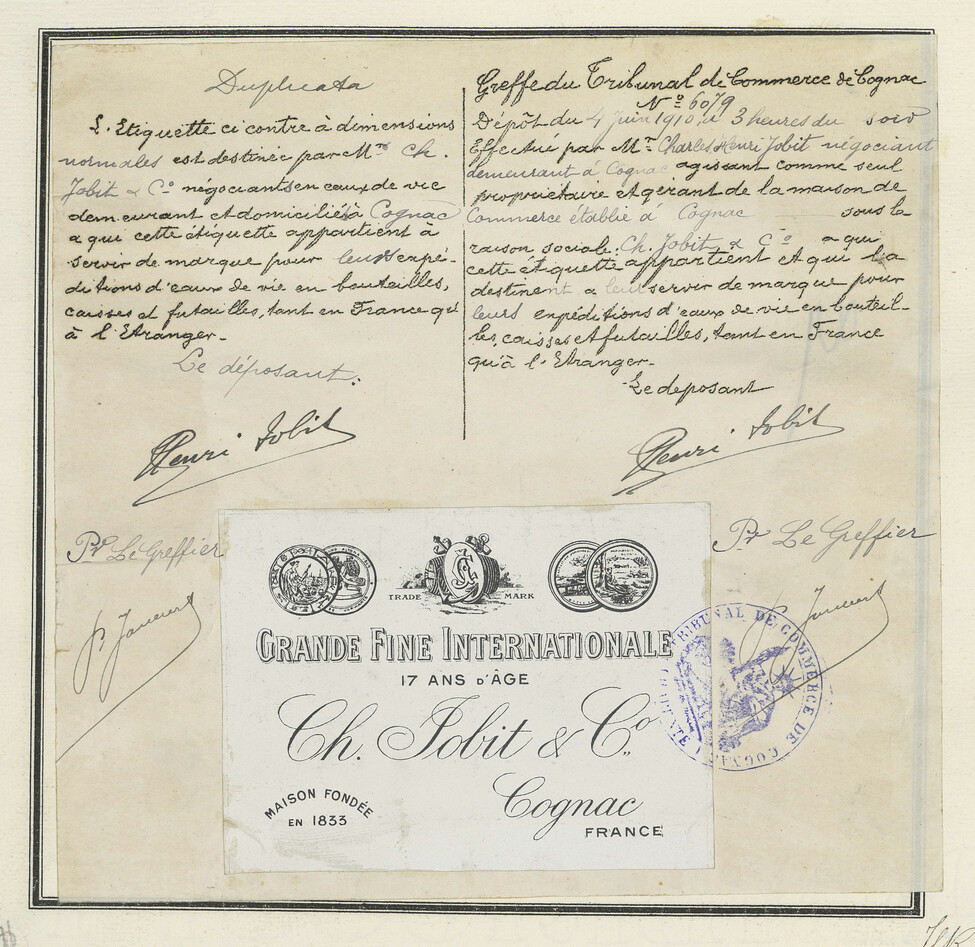 Duplicata
L'Etiquette ci contre à dimensions
normales est destinée par Mrs Ch.
Jobit & Co négociants en eaux de vie
demeurant et domiciliés à Cognac
a qui cette étiquette appartient à
servir de marque pour leurs expé-
ditions d'eaux de vie en bouteilles,
caisses et futailles, tant en France qu'
à l'Etranger.
Le déposant.
Henri Jobit
Greffe du Tribunal de Commerce de Cognac
No 6079
Dépôt du 4 Juin 1910 à 3 heures du soir
Effectué par Mr Charles Henri Jobit négociant
demeurant à Cognac agissant comme seul
propriétaire et gérant de la maison de
Commerce établie à Cognac sous la
raison sociale. Ch. Jobit & Co a qui
cette étiquette appartient et qui la
destinent a leur servir de marque pour
leurs expéditions d'eaux de vie en bouteil-
les, caisses et futailles, tant en France
qu'à l'Etranger.
Le deposant
Henri Jobit
Pr Le Greffier
Pr Le Greffier
TRADE MARK
GRANDE FINE INTERNATIONALE
17 ANS D'ÂGE
Ch. Jobit & Co.
Cognac
FRANCE
MAISON FONDÉE
EN 1833
TRIBUNAL DE COMMERCE DE COGNAC